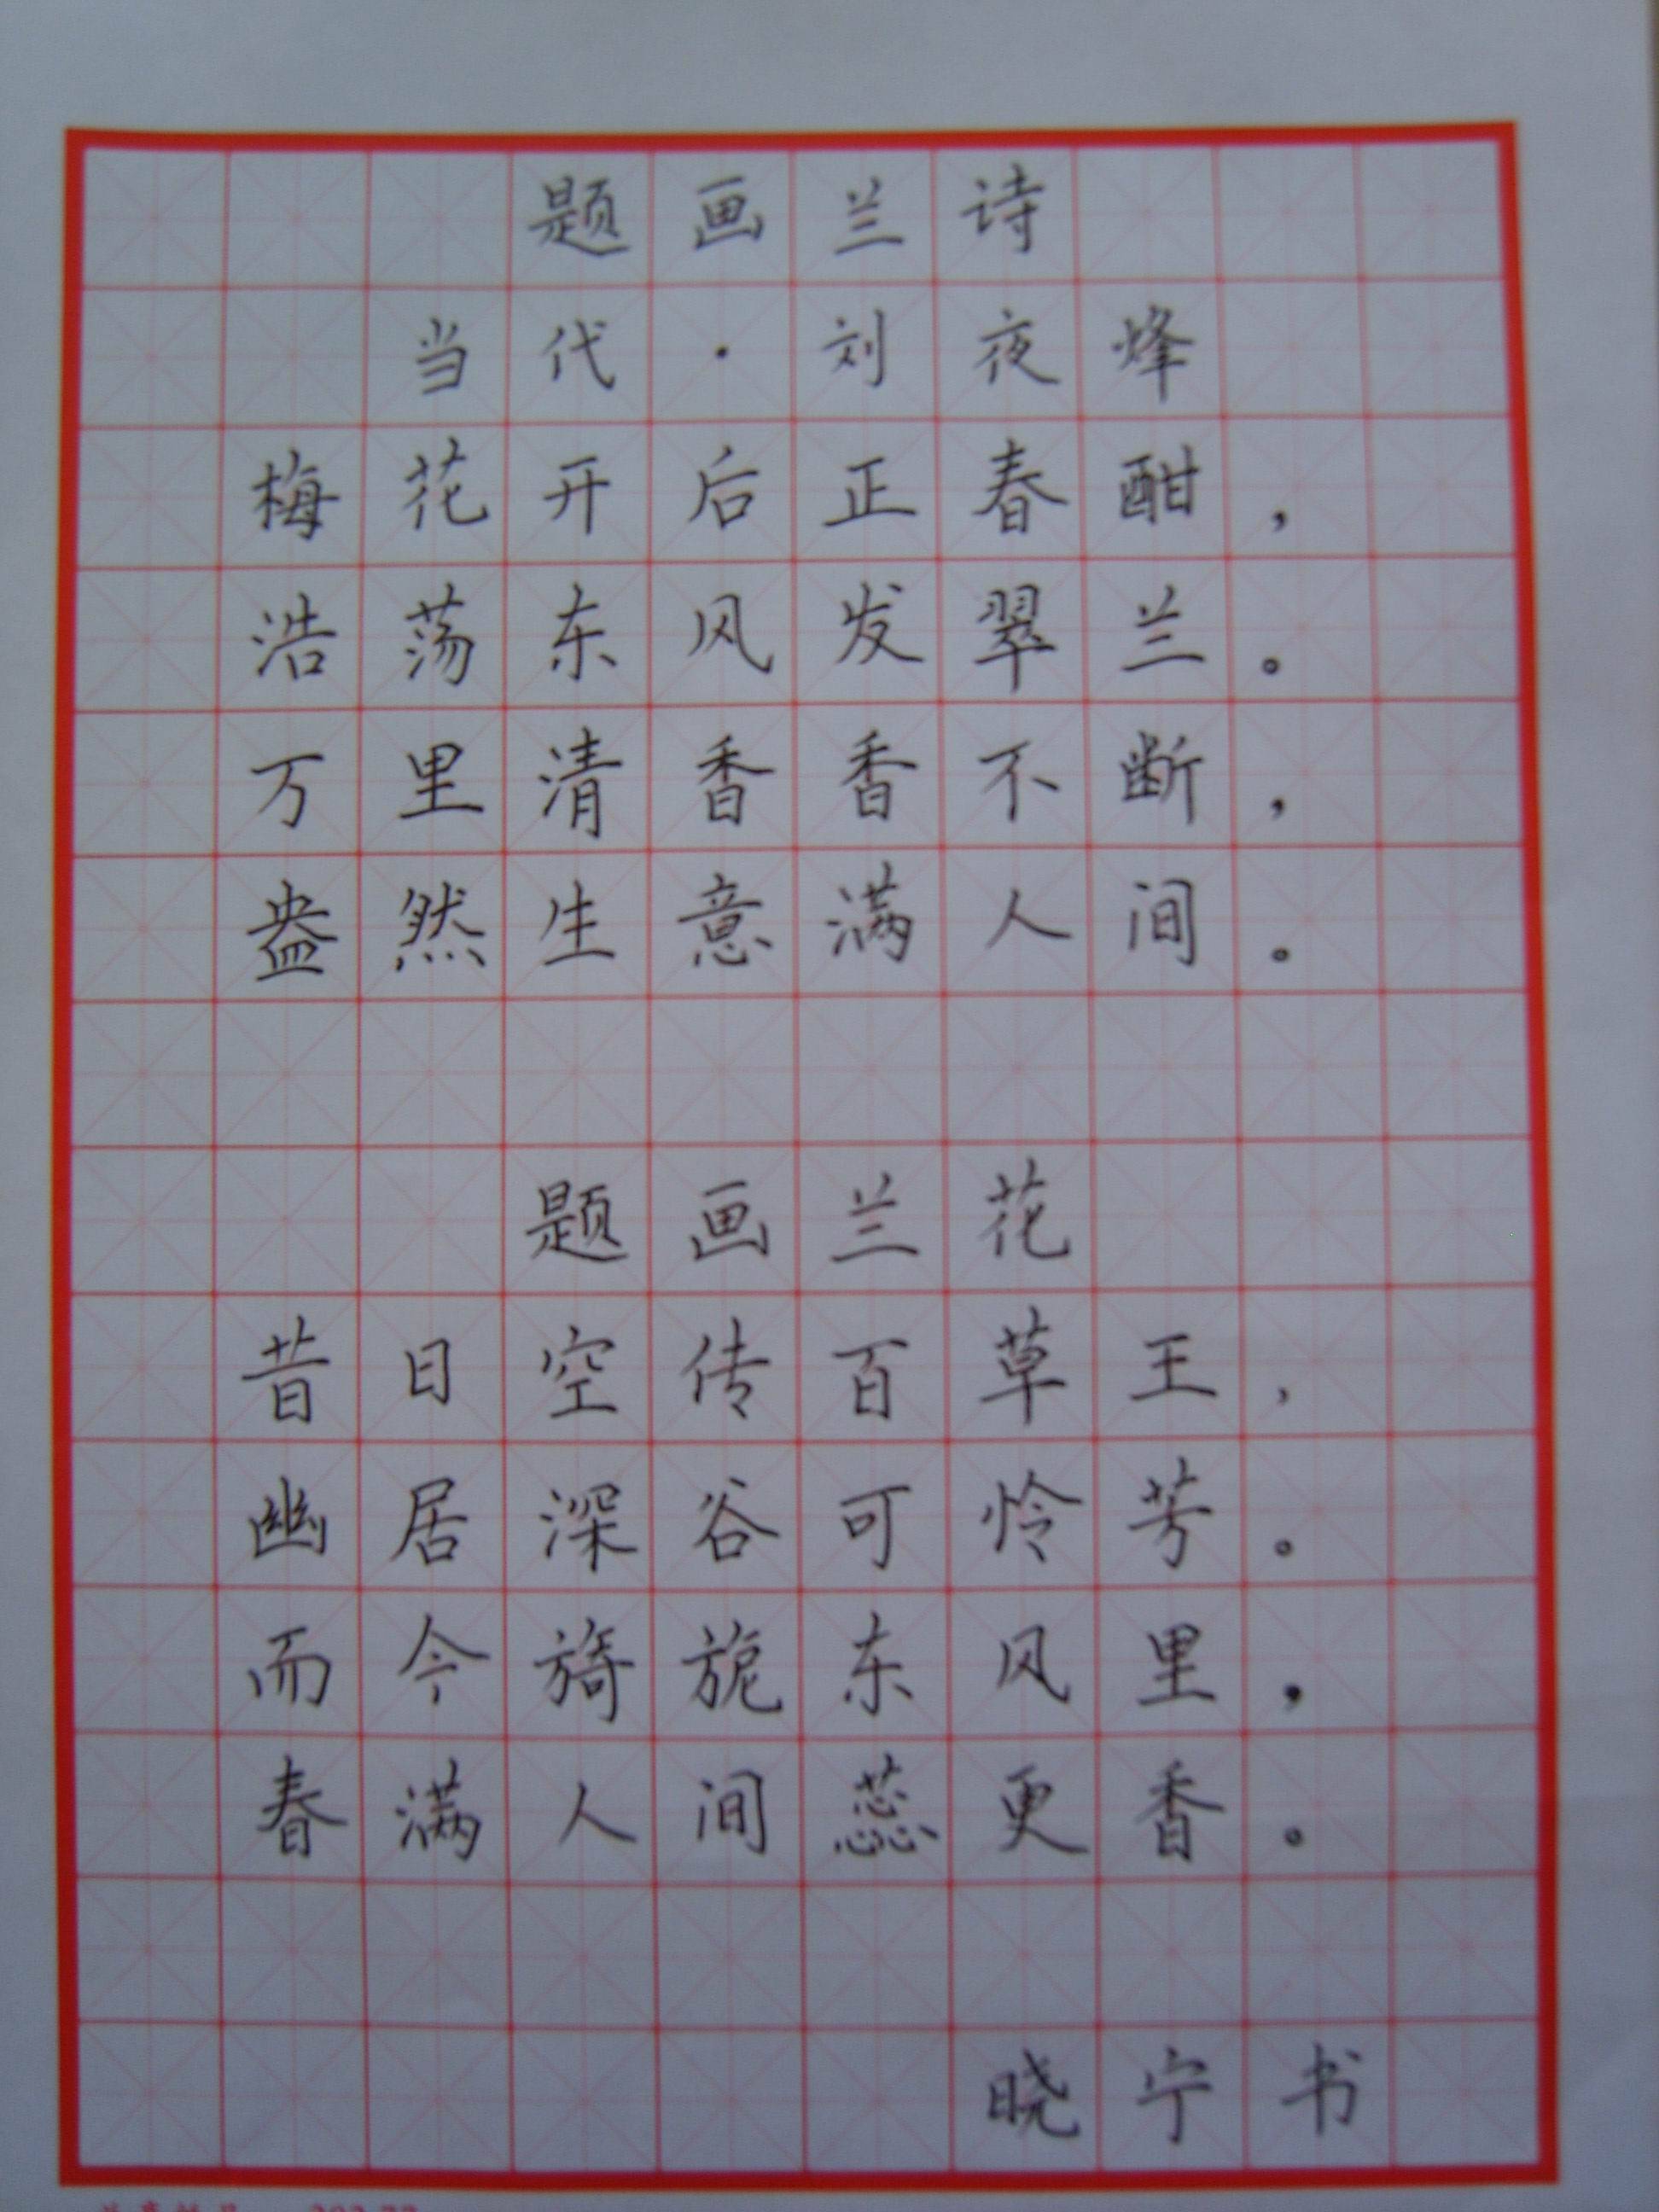 题画兰诗
当代·刘夜烽
梅花开后正春酣，
浩荡东风发翠兰。
万里清香香不断，
盎然生意满人间。
题画兰花
昔日空传百草王，
幽居深谷可怜芳。
而今旖旎东风里，
春满人间蕊更香。
晓宁书